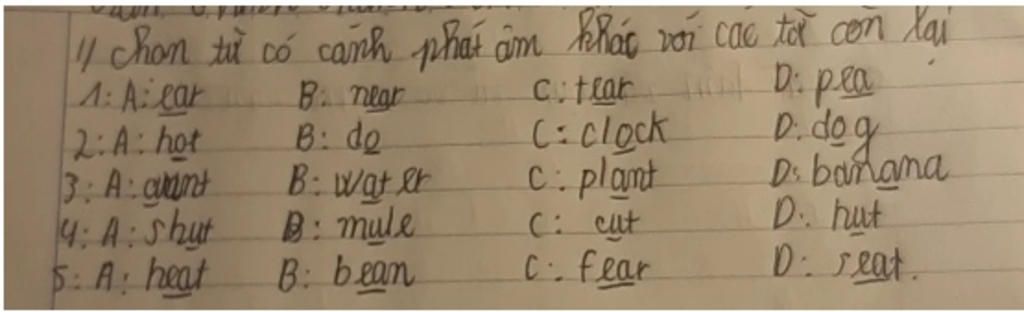 1) chọn từ có cách phát âm khác với các từ còn lại
1: A: ear B: near C: tear D: pea
2: A: hot B: do C: clock D: dog
3: A: aunt B: water C: plant D: banana
4: A: shut B: mule C: cut D: hut
5: A: heat B: bean C: fear D: seat.